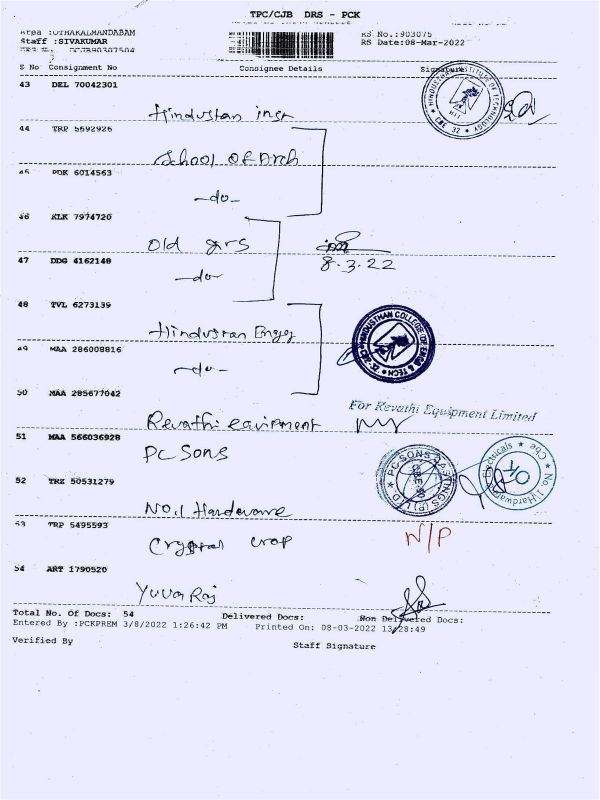 TPC/CJB DRS - PCK
Area :OTHAKALMANDABAM
Staff :SIVAKUMAR
RS No.:903075
RS Date:08-Mar-2022
S No Consignment No Consignee Details Signature
43 DEL 70042301
Hindustan inst
44 TRP 5692926
School Of Arch
45 PDK 6014563
-do-
46 KLK 7974720
Old
47 DDG 4162148
8.3.22
-do-
48 TVL 6273139
Hindustan Engg
49 MAA 286008816
-do-
50 MAA 285677042
For Revathi Equipment Limited
Revathi equipment
51 MAA 566036928
PC Sons
52 TRZ 50531279
No.1 Hardware
53 TRP 5495593
N/P
crop
54 ART 1790520
Yuva Raj
Total No. Of Docs: 54 Delivered Docs: Non Delivered Docs:
Entered By :PCKPREM 3/8/2022 1:26:42 PM Printed On: 08-03-2022 13:28:49
Verified By Staff Signature